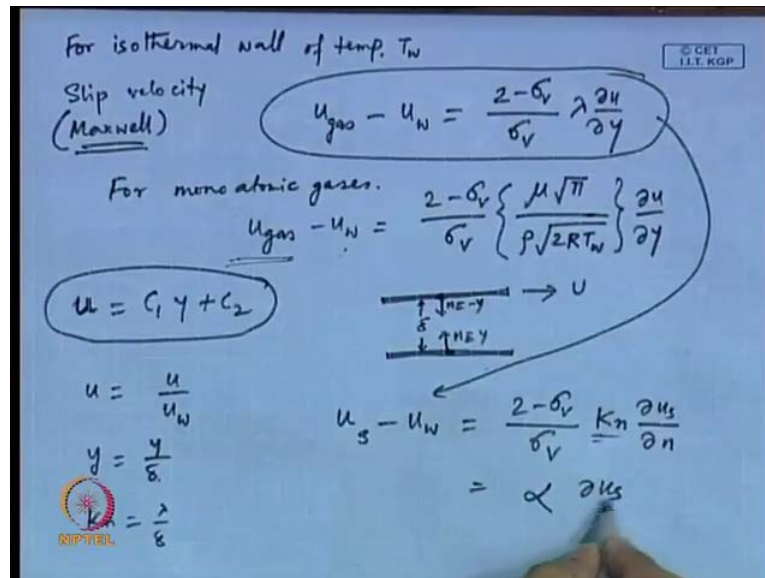 For isothermal wall of temp. T_w
© CET
I.I.T. KGP
Slip velocity
(Maxwell)
u_gas − u_w = (2−σ_v)/σ_v λ ∂u/∂y
For monoatomic gases.
u_gas − u_w = (2−σ_v)/σ_v { μ√π / ρ√(2RT_w) } ∂u/∂y
u = C_1 y + C_2
→ U
n ≡ −y
δ
n ≡ y
u = u/u_w
u_s − u_w = (2−σ_v)/σ_v Kn ∂u_s/∂n
y = y/δ.
= α ∂u_s
Kn = λ/δ
NPTEL